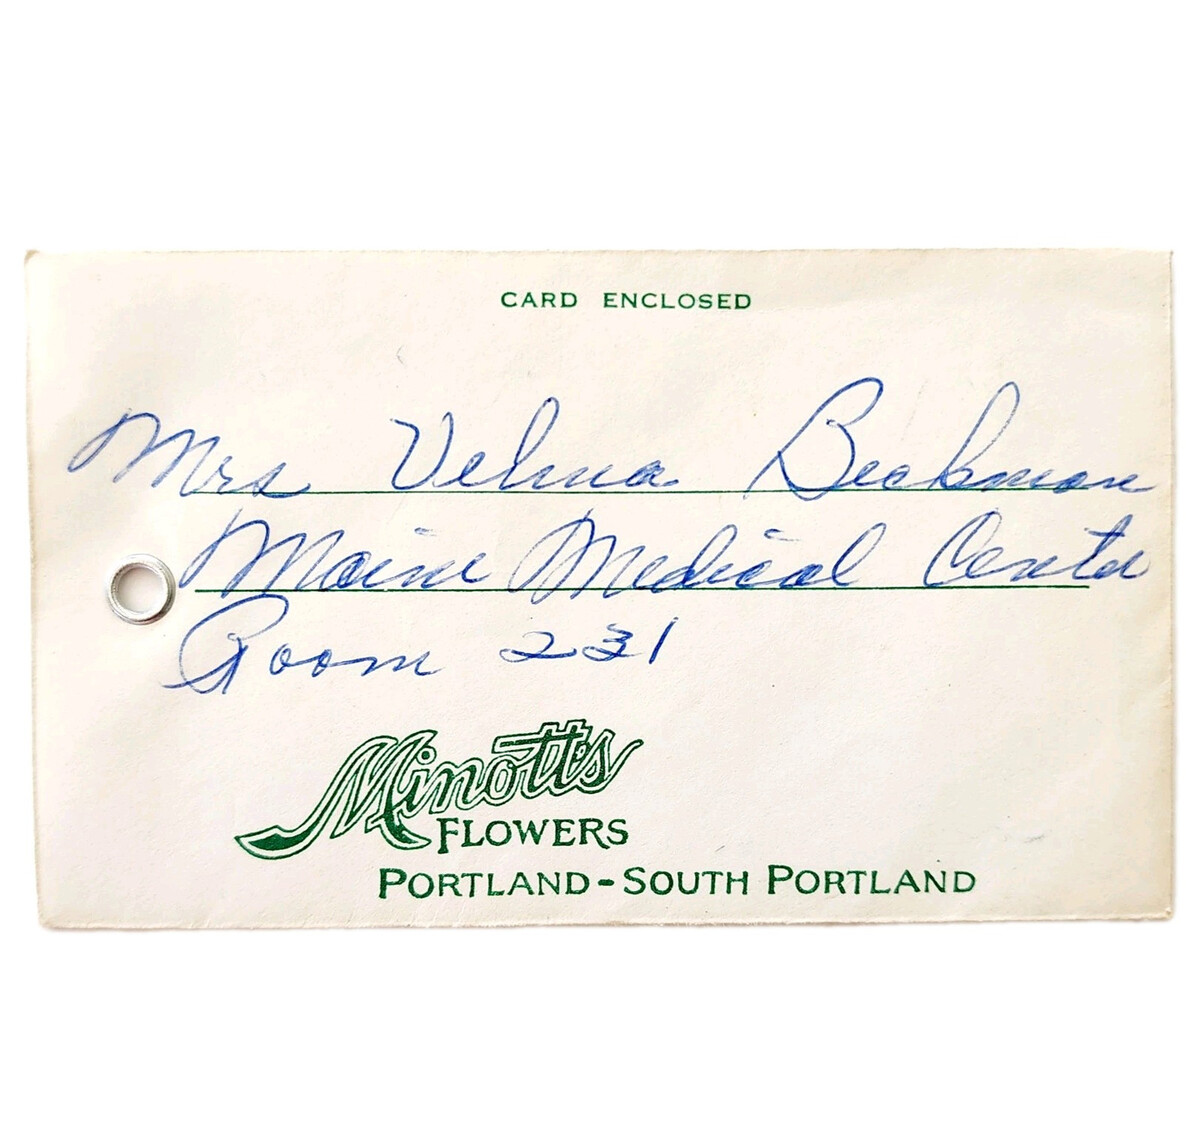 CARD ENCLOSED
Mrs Velma Beckman
Maine Medical Center
Room 231
Minott's
FLOWERS
PORTLAND-SOUTH PORTLAND